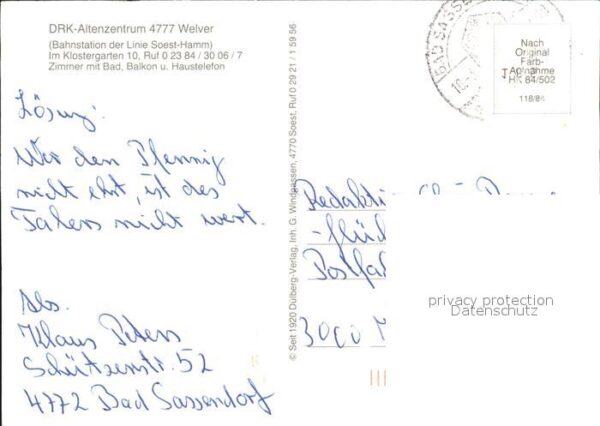 DRK-Altenzentrum 4777 Welver
(Bahnstation der Linie Soest-Hamm)
Im Klostergarten 10, Ruf 0 23 84 / 30 06 / 7
Zimmer mit Bad, Balkon u. Haustelefon
Lösung:
Wer den Pfennig
nicht ehrt, ist des
Talers nicht wert.
Abs.
Klaus Peters
Schützenstr. 52
4772 Bad Sassendorf
© Seit 1920 Dülberg-Verlag, Inh. G. Windgassen, 4770 Soest, Ruf 0 29 21 / 1 59 56
BAD SASSE
Nach
Original
Farb-
Aufnahme
HK 84/502
118/84
Redakti
-flüc
Postfa
3000
privacy protection
Datenschutz